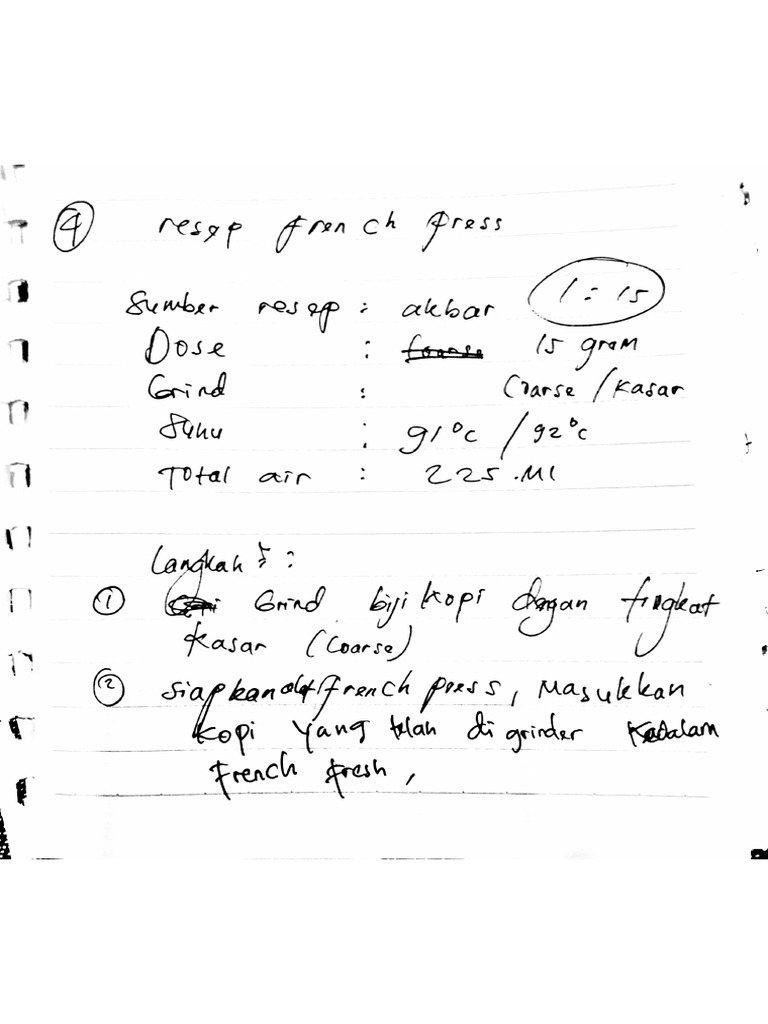 4 resep french press
Sumber resep : akbar 1 : 15
Dose : 15 gram
Grind : Coarse / Kasar
Suhu : 91°C / 92°C
Total air : 225 . Ml
Langkah :
1 Grind biji kopi dengan tingkat
Kasar (Coarse)
2 siapkan french press, Masukkan
kopi yang telah di grinder kedalam
French fresh,